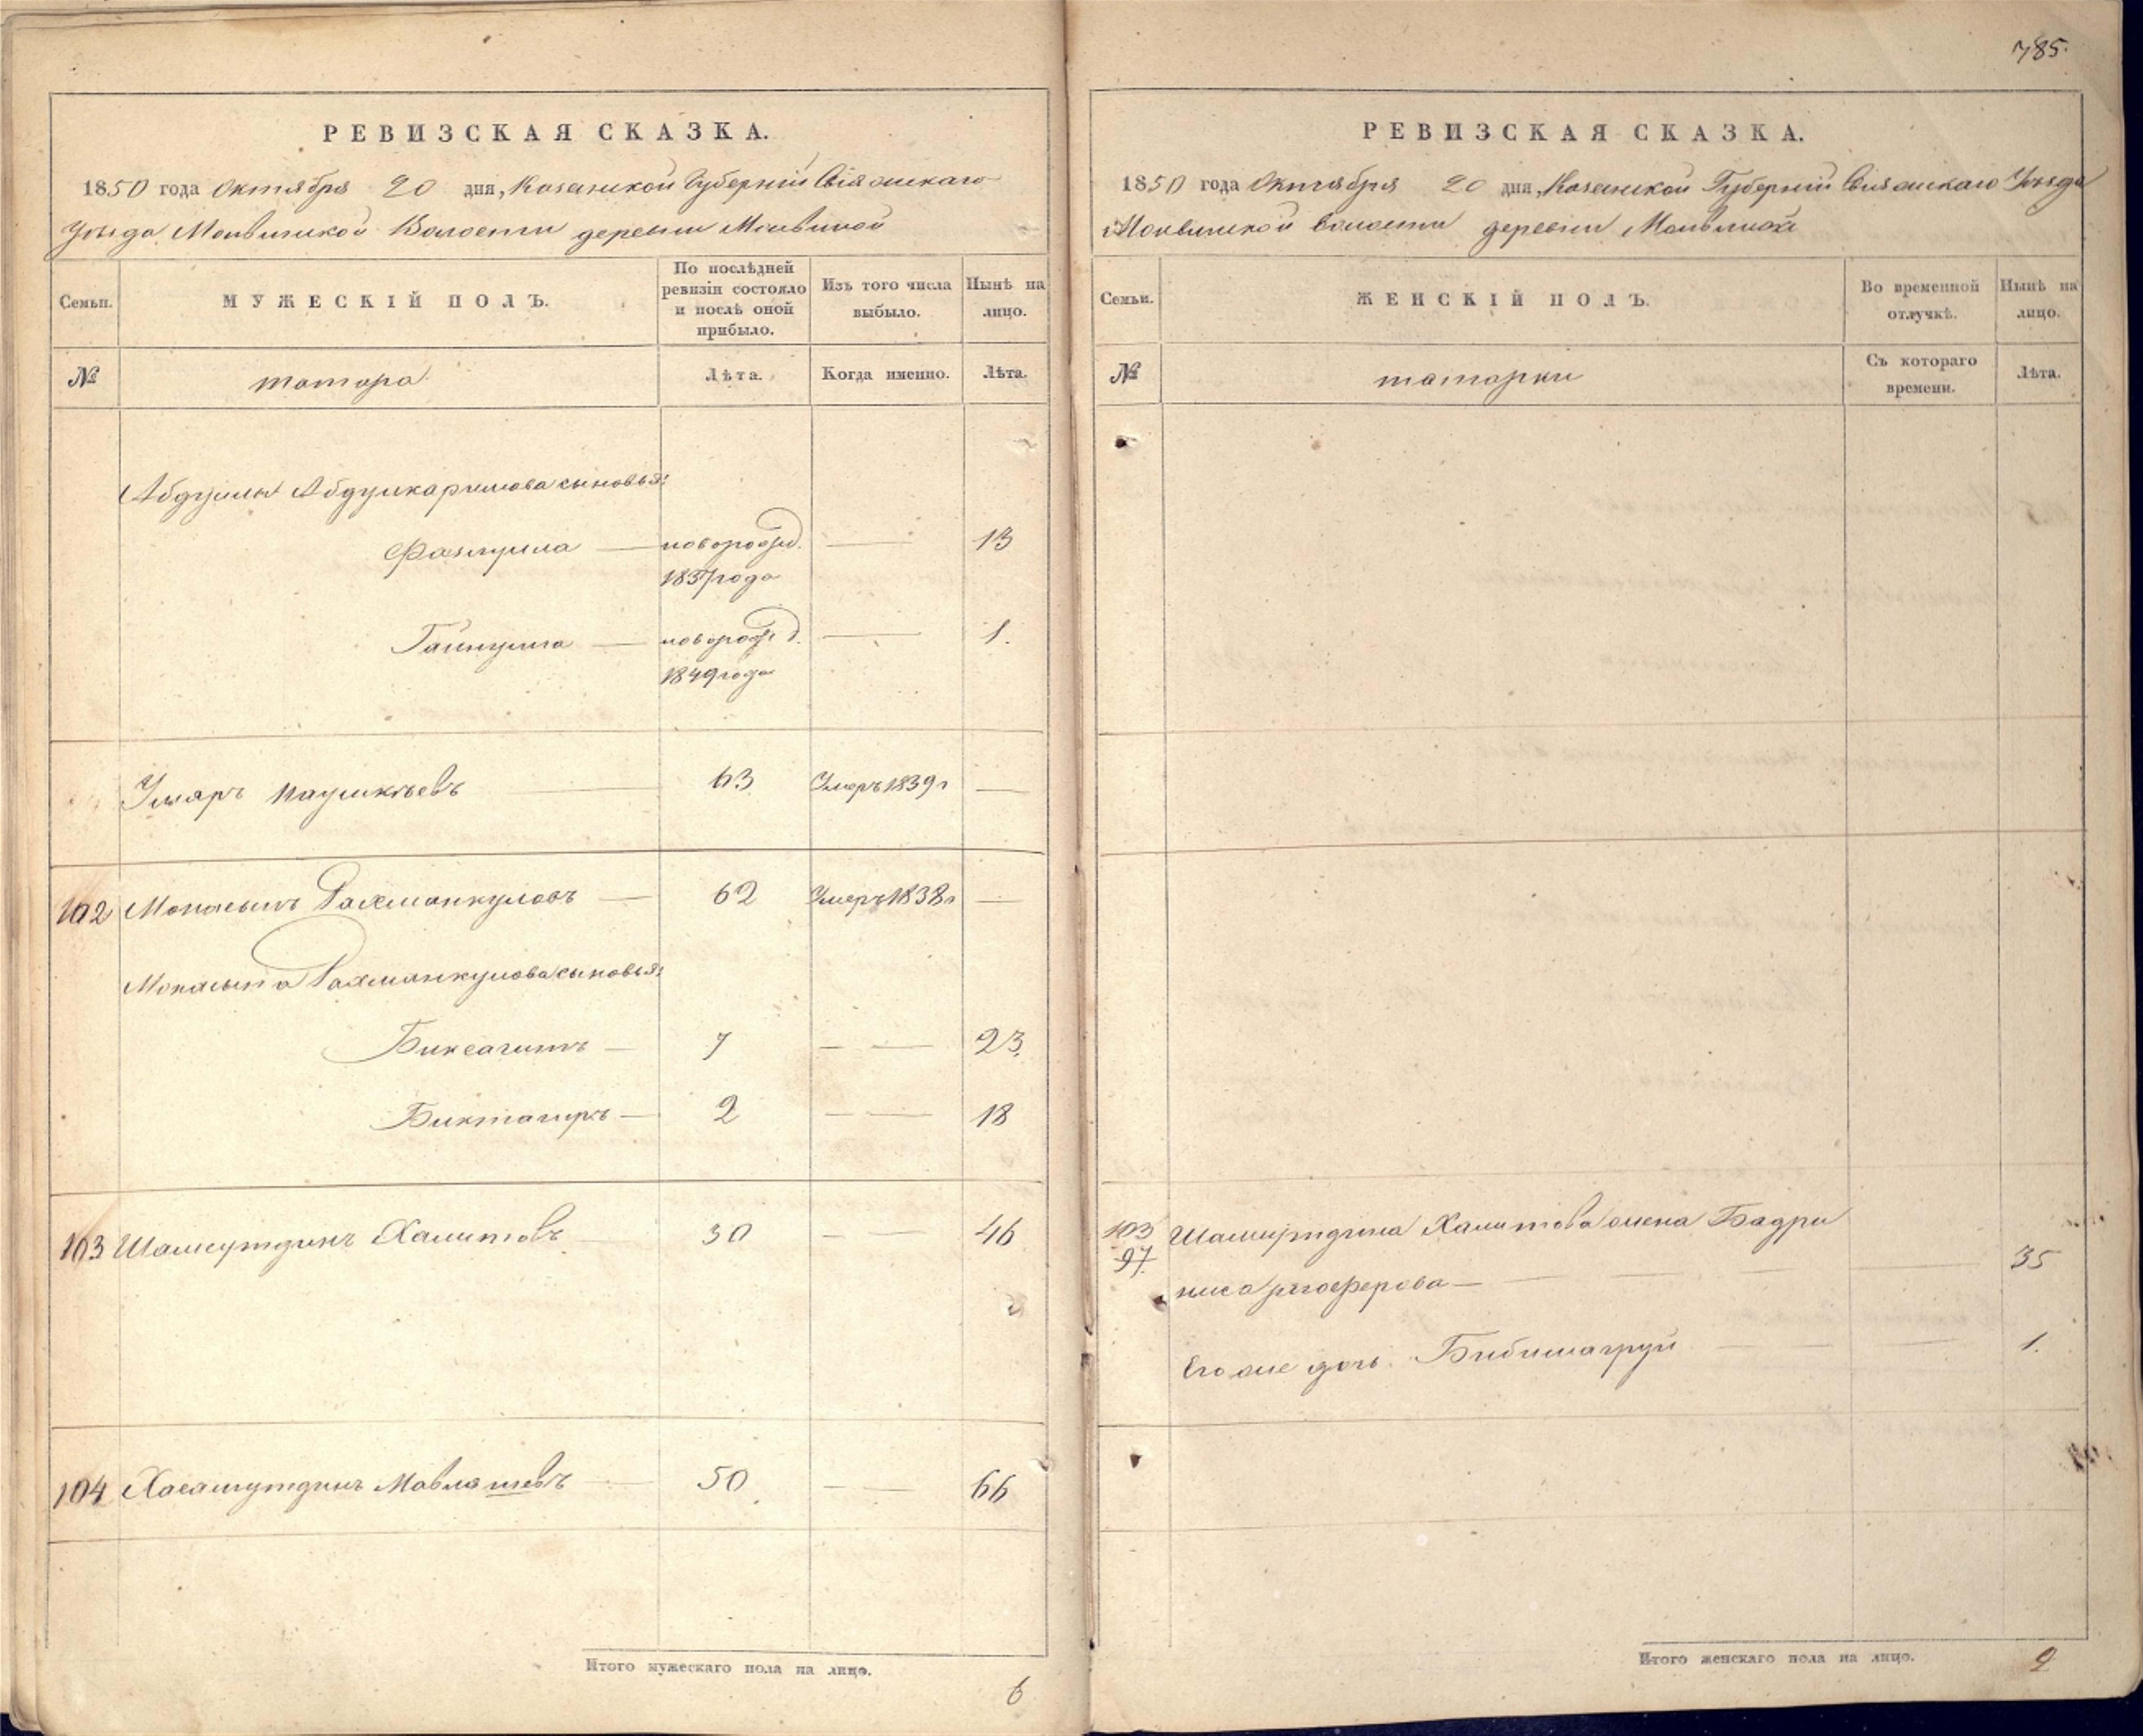 РЕВИЗСКАЯ СКАЗКА.
1850 года Октября 20 дня, Казанской Губерніи Свіяжскаго
Уѣзда Молвинской Волости деревни Молвиной
Семьи.
МУЖЕСКІЙ ПОЛЪ.
По послѣдней ревизіи состояло и послѣ оной прибыло.
Изъ того числа выбыло.
Нынѣ на лицо.
№
татара
Лѣта.
Когда именно.
Лѣта.
Абдуллы Абдулкаримова сыновья:
Фазлулла — новорожд. — 13
1837 года
Гайнулла — новорожд. — 1.
1849 года
Умяръ 63 Умеръ 1839 г —
102 Рахманкуловъ — 62 Умеръ 1838 г —
Рахманкулова сыновья:
Биксагитъ — 7 — — 23.
Биктагиръ — 2 — — 18
103 Шамсутдинъ Халитовъ 30 — — 46
104 Хасамутдинъ Мавляшевъ 50 — — 66
Итого мужескаго пола на лицо.
6
785.
РЕВИЗСКАЯ СКАЗКА.
1850 года Октября 20 дня, Казанской Губерніи Свияжскаго Уѣзда
Молвинской волости деревни Молвиной
Семьи.
ЖЕНСКІЙ ПОЛЪ.
Во временной отлучкѣ.
Нынѣ на лицо.
№
татарки
Съ котораго времени.
Лѣта.
103 Шамсутдина Халитова жена Бадри
97. ниса — 35
Его же дочь 1.
Итого женскаго пола на лицо.
2